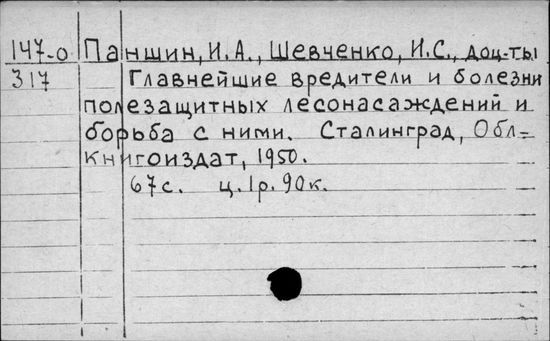 147-о Паншин, И.А., Шевченко, И.С., доц-ты
317 Главнейшие вредители и болезни
полезащитных лесонасаждений и
борьба с ними. Сталинград, Обл-
книгоиздат, 1950.
67с. ц. 1р. 90к.